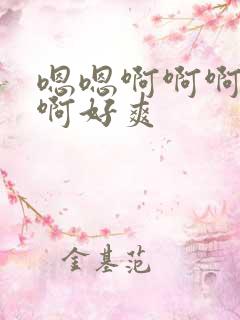 嗯嗯啊啊啊
啊好爽
金基范